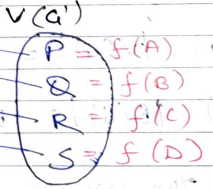 V(G')
P = f(A)
Q = f(B)
R = f(C)
S = f(D)